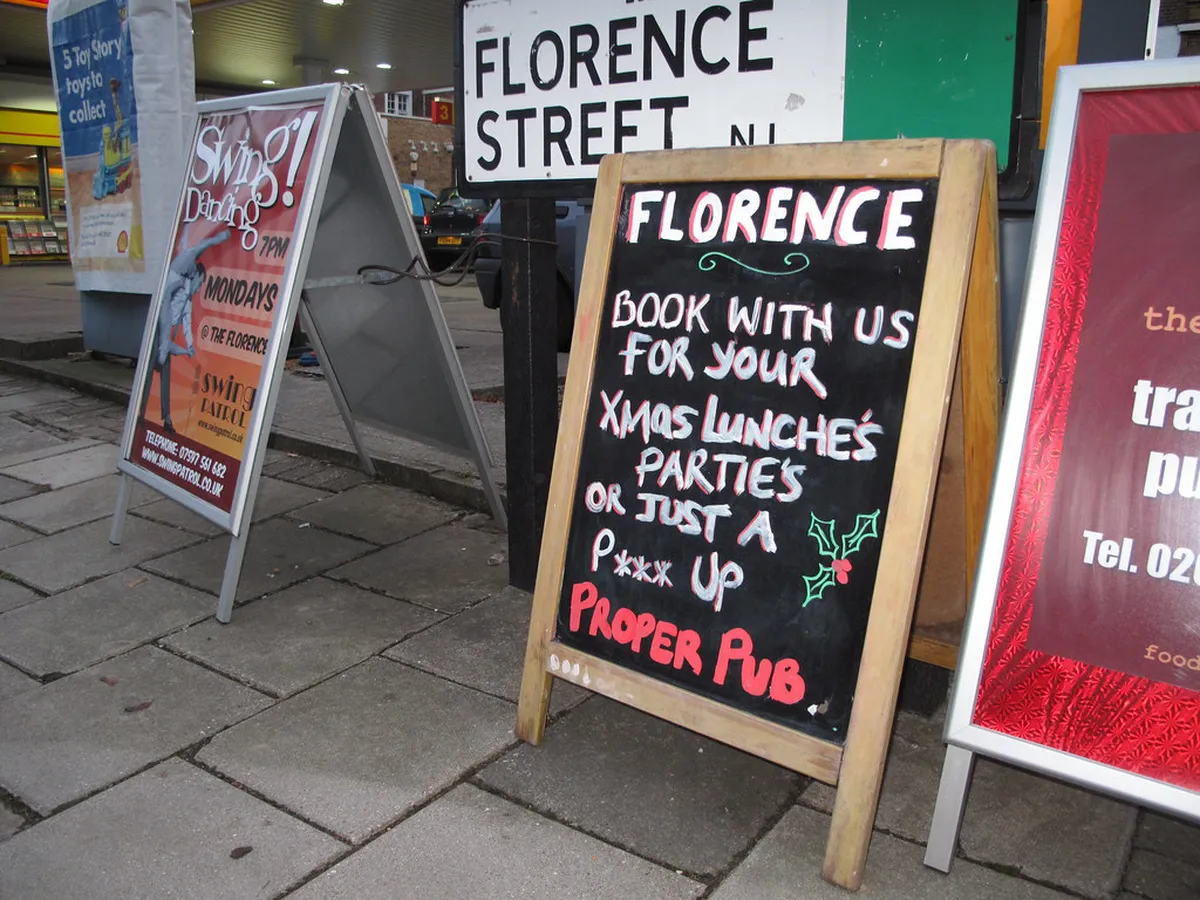 5 Toy Story
toys to
collect
Swing!
Dancing
7PM
MONDAYS
@ THE FLORENCE
swing
PATROL
www.swingpatrol.co.uk
TELEPHONE: 07597 561 682
WWW.SWINGPATROL.CO.UK
3
FLORENCE
STREET N1
FLORENCE
BOOK WITH US
FOR YOUR
XMAS LUNCHE'S
PARTIE'S
OR JUST A
P*** UP
PROPER PUB
the
tra
pu
Tel. 020
food